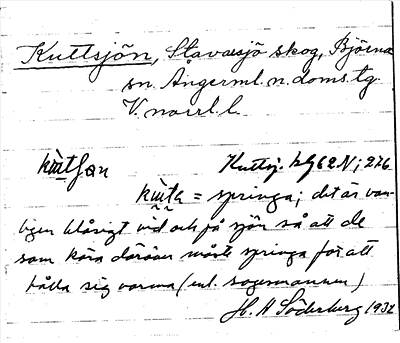 Kuttsjön, Stavarsjö skog, Björna
sn. Ångerml. n. doms. tg.
V. norrl. l.
Kuttsj. hg 62 N; 276
= springa; det är van-
ligen blåsigt vid och på sjön så att de
som köra däröver måste springa för att
hålla sig varma (enl. sagesmannen)
H. A Söderberg 1932